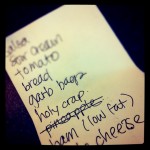 salsa
sour cream
tomato
bread
garb bags
holy crap.
pineapple
ham (low fat)
cheese